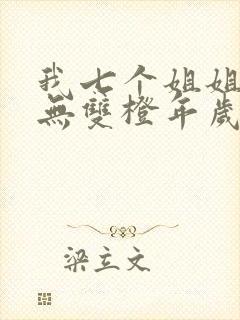 我七个姐姐
無雙橙年歲
梁立文